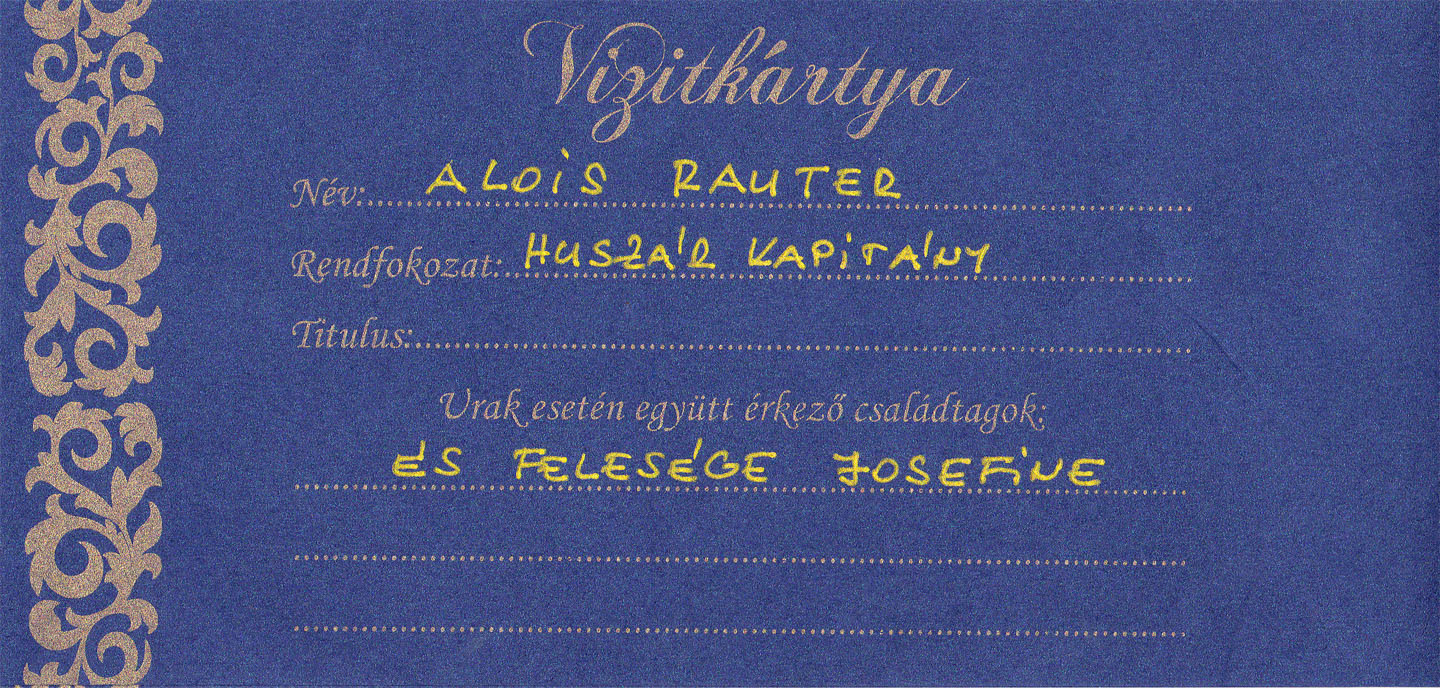 Vizitkártya
Név: ALOIS RAUTER
Rendfokozat: HUSZÁR KAPITÁNY
Titulus:
Urak esetén együtt érkező családtagok:
ÉS FELESÉGE JOSEFINE